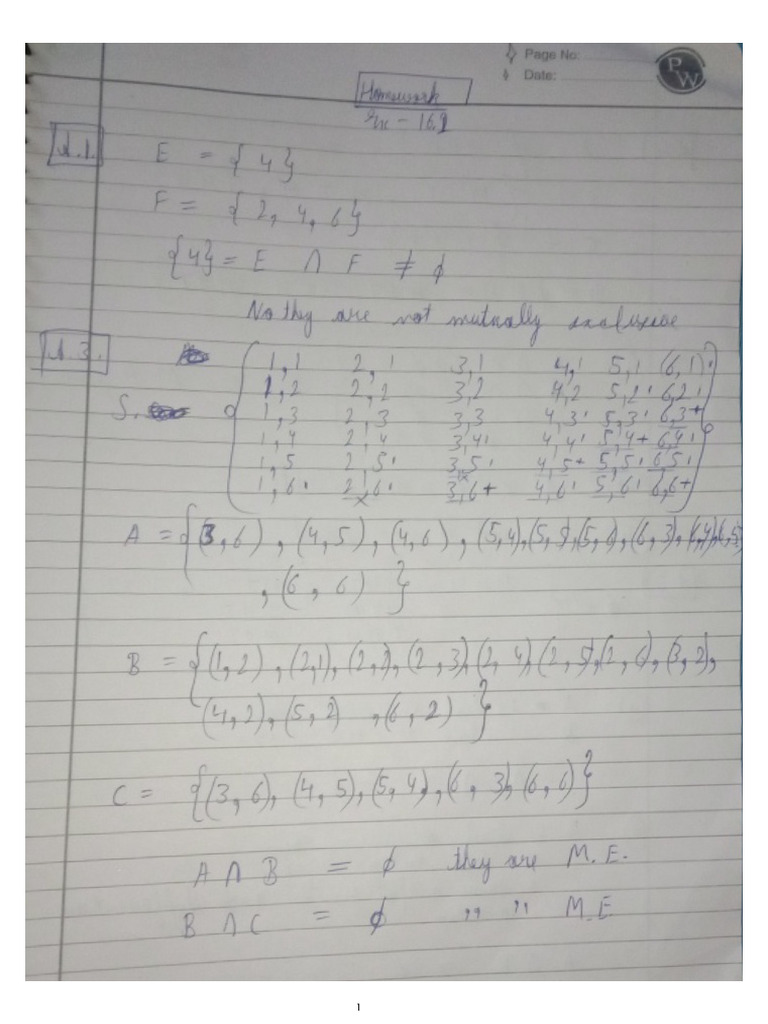 Page No:
Date:
PW
Homework
Ex - 16.2
A.1.
E = { 4 }
F = { 2, 4, 6 }
{4} = E ∩ F ≠ ϕ
No they are not mutually exclusive
A.3.
1,1 2,1 3,1 4,1 5,1 (6,1)
1,2 2,2 3,2 4,2 5,2 6,2
S. 1,3 2,3 3,3 4,3 5,3 6,3
1,4 2,4 3,4 4,4 5,4 6,4
1,5 2,5 3,5 4,5 5,5 6,5
1,6 2,6 3,6 4,6 5,6 6,6
A = {(3,6), (4,5), (4,6), (5,4), (5,5), (5,6), (6,3), (6,4), (6,5)
, (6,6) }
B = {(1,2), (2,1), (2,2), (2,3), (2,4), (2,5), (2,6), (3,2),
(4,2), (5,2) , (6,2) }
C = {(3,6), (4,5), (5,4), (6,3), (6,6)}
A ∩ B = ϕ they are M.E.
B ∩ C = ϕ " " M.E
1